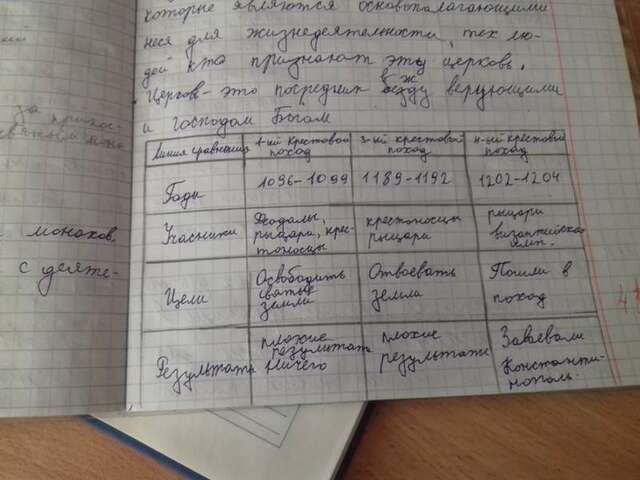 которые являются основополагающими
неся для жизнедеятельности, тех лю-
дей кто признают эту церковь.
Церковь - это посредник между верующими
и господом Богом
Линия сравнения 1-ый крестовой поход 3-ый крестовый поход 4-ый крестовый поход
Годы 1096-1099 1189-1192 1202-1204
Учасники Феодалы, рыцари, крес-тоносцы крестоносцы рыцари рыцари византийская имп.
Цели Освободить святые земли Отвоевать земли Пошли в поход
Результаты плохие результаты ничего плохие результаты Завоевали Константи-нополь.
монахов.
с деяте-